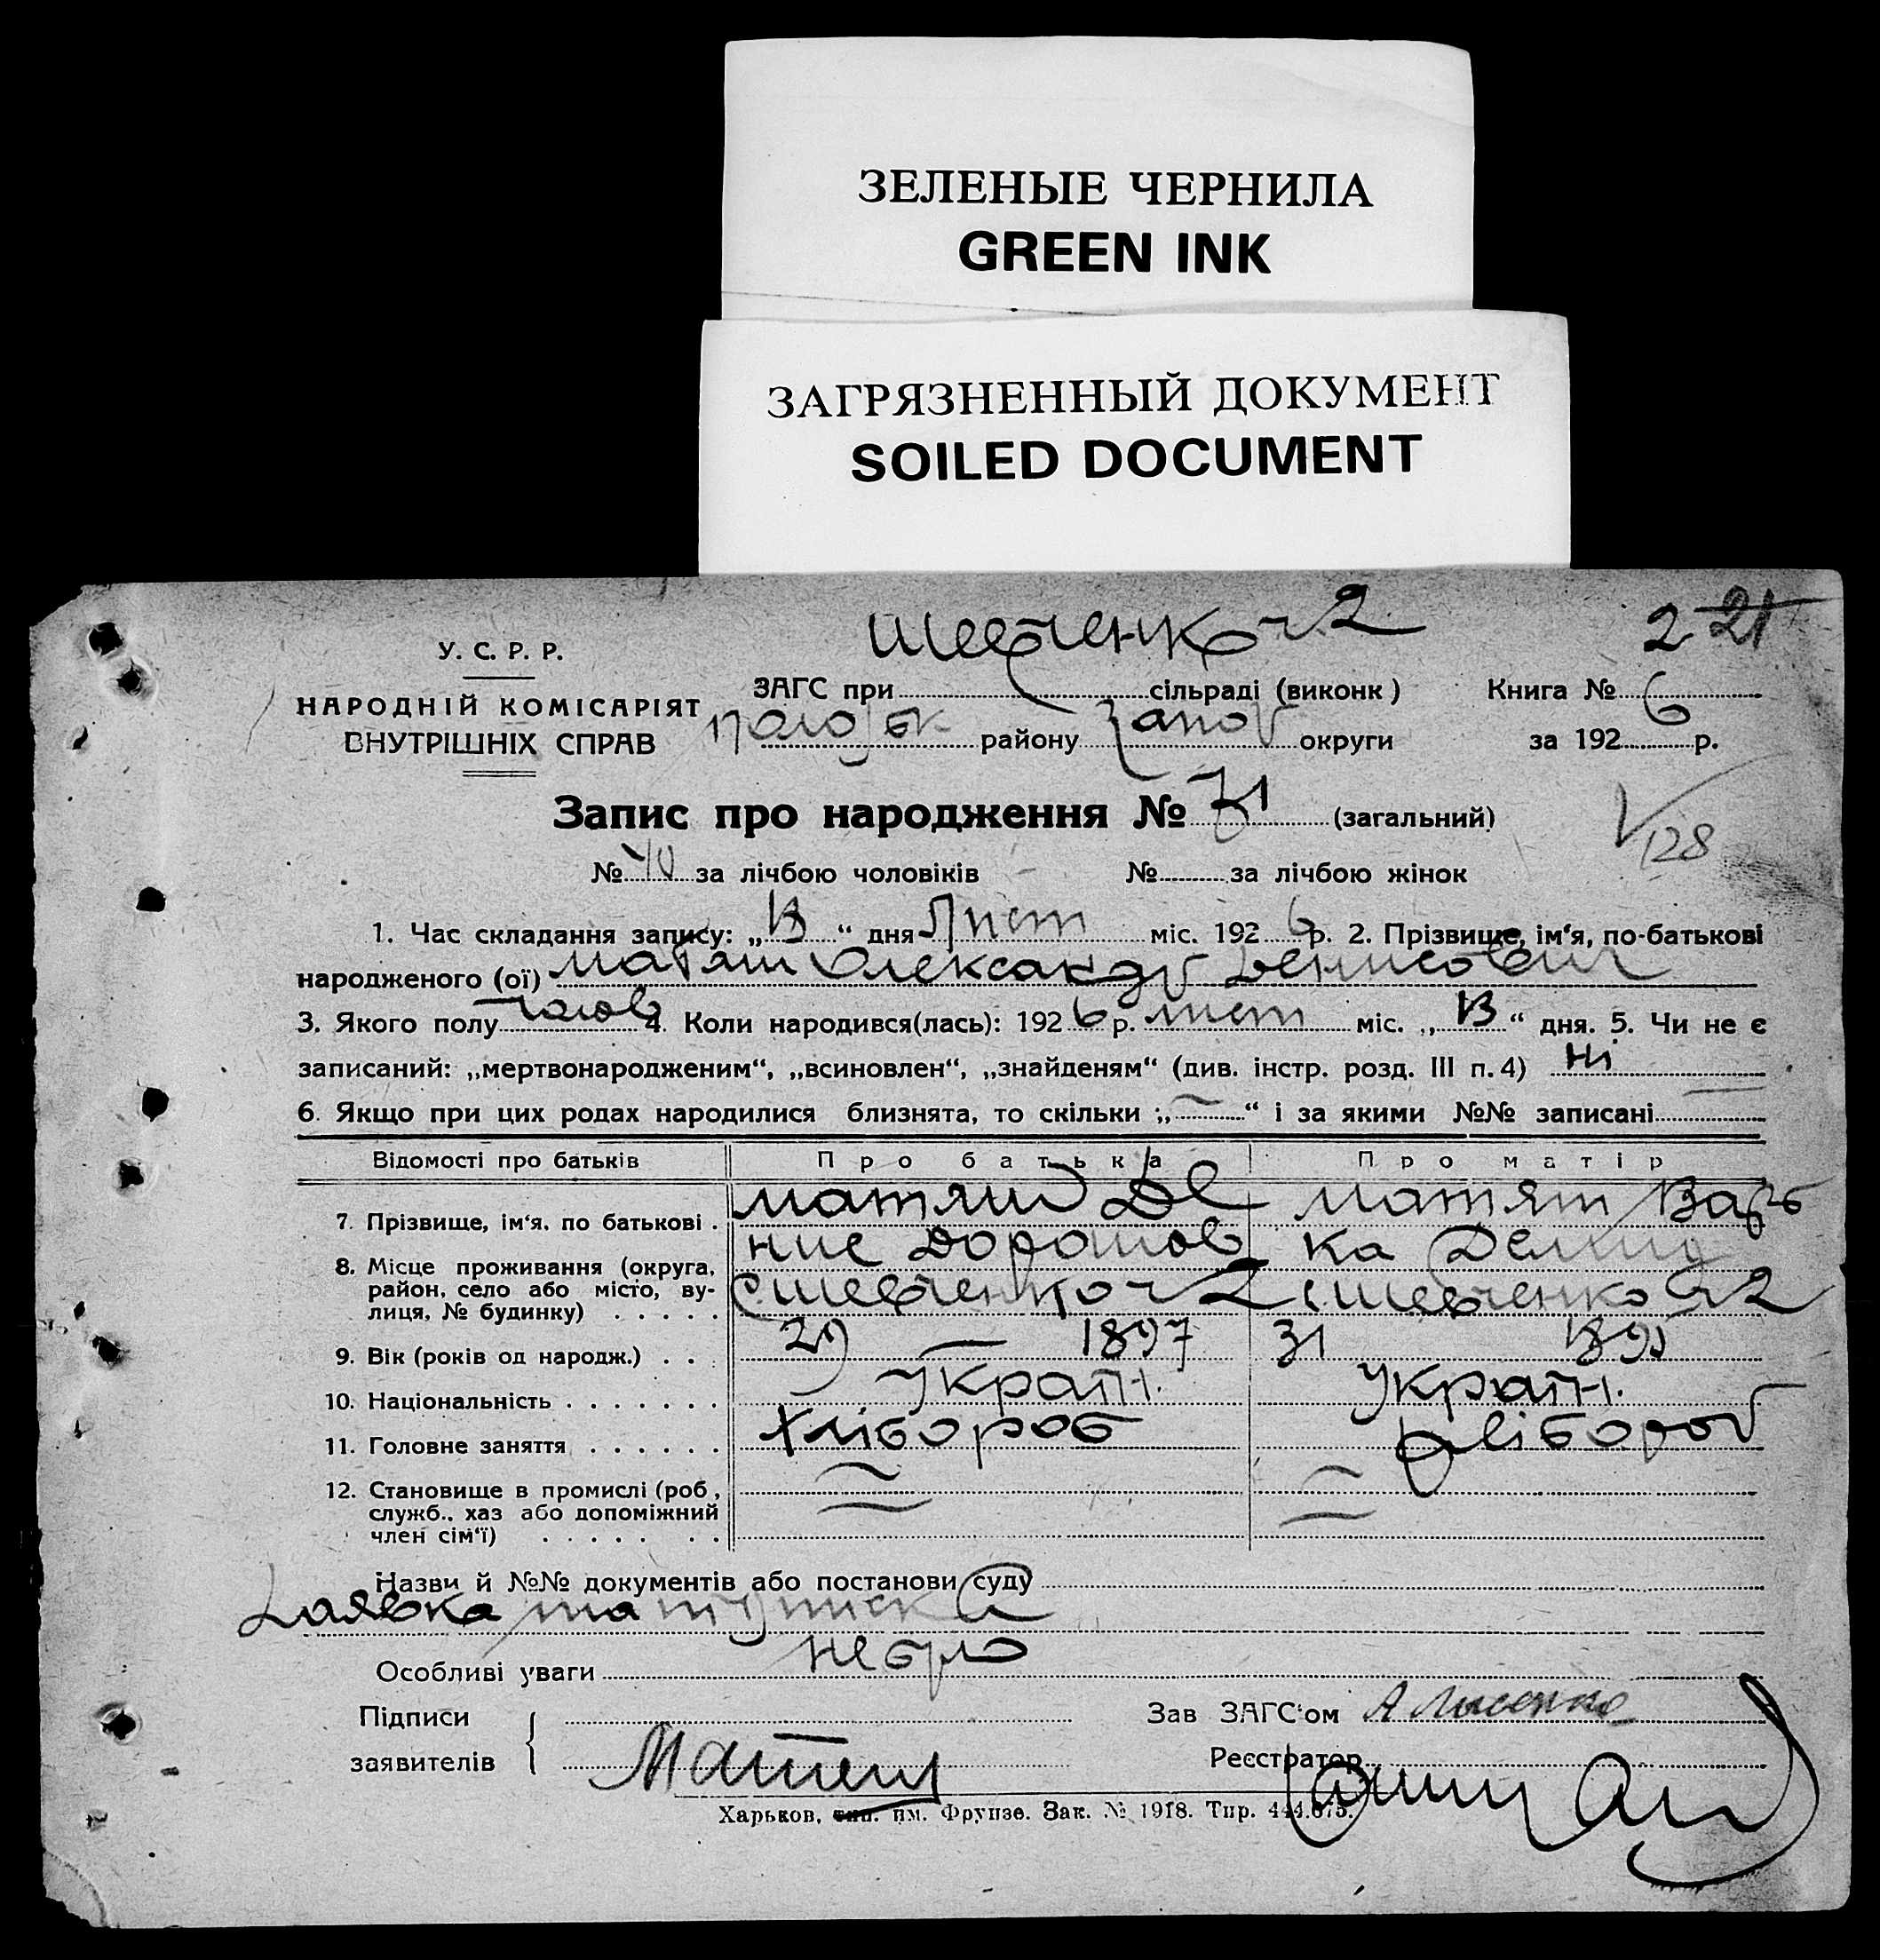 ЗЕЛЕНЫЕ ЧЕРНИЛА
GREEN INK
ЗАГРЯЗНЕННЫЙ ДОКУМЕНТ
SOILED DOCUMENT
Шевченко ч. 2
2 21
У. С. Р. Р.
НАРОДНІЙ КОМІСАРІЯТ
ВНУТРІШНІХ СПРАВ
ЗАГС при сільраді (виконк) Книга №
району Запов округи за 1926 р.
Запис про народження № 71 (загальний)
№ 40 за лічбою чоловіків № за лічбою жінок
128
1. Час складання запису: „13“ дня Лист міс. 1926 р. 2. Прізвище, ім‘я, по-батькові
народженого (ої) Матяш Олександр Денисович
3. Якого полу чолов 4. Коли народився(лась): 1926 р. лист міс. „13“ дня. 5. Чи не є
записаний: „мертвонародженим“, „всиновлен“, „знайденям“ (див. інстр. розд. III п. 4) Ні
6. Якщо при цих родах народилися близнята, то скільки „—“ і за якими №№ записані —
Відомості про батьків Про батька Про матір
7. Прізвище, ім‘я, по батькові . Матяш Де Матяш Варь
нис Дорошов ка Демид
8. Місце проживання (округа, район, село або місто, вулиця, № будинку) . . . . . с Шевченко ч 2 с Шевченко ч 2
9. Вік (років од народж.) . . . 29 — 1897 31 1895
10. Національність . . . . . . . Україн. Україн.
11. Головне заняття . . . . . . Хлібороб Хлібороб
12. Становище в промислі (роб,
служб., хаз або допоміжний
член сім‘ї) . . . . . . .
Назви й №№ документів або постанови суду
Заявка та підписка
Особливі уваги небуло
Підписи Зав ЗАГС‘ом А Лысенко
заявителів Матяш Реєстратор
Харьков, тип. им. Фрунзе. Зак. № 1918. Тир. 444.675.